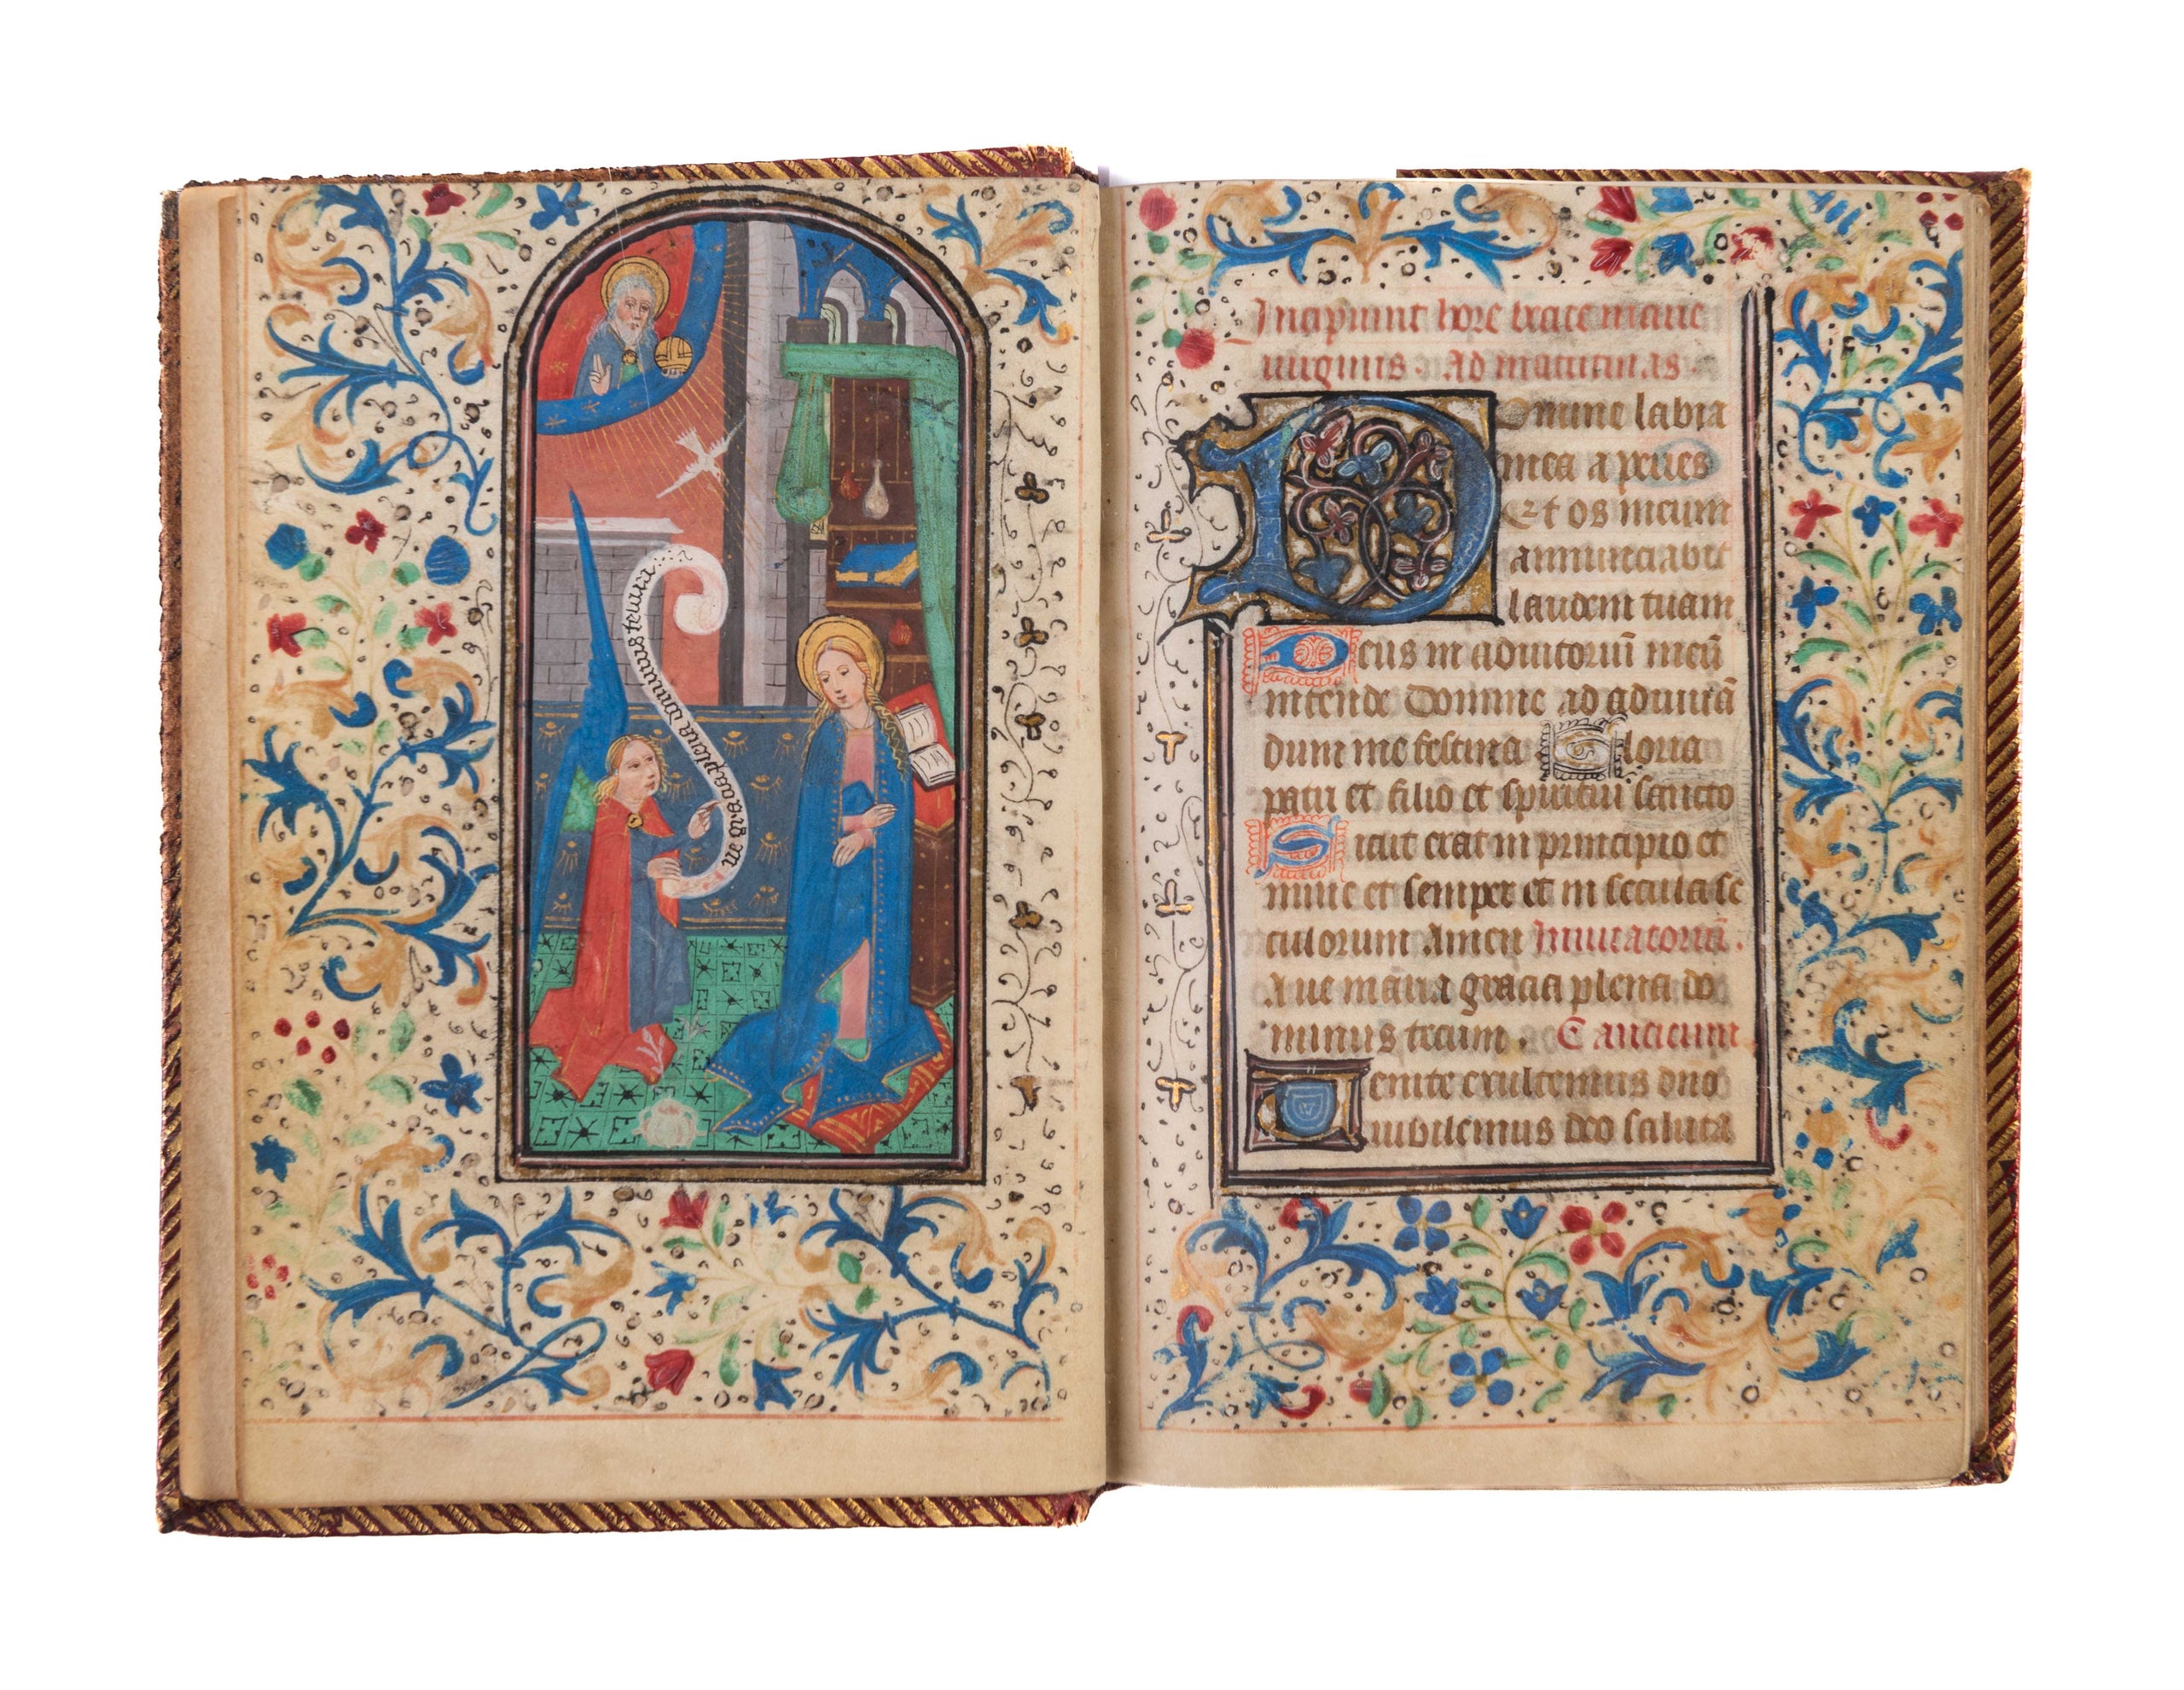 ue gracia plena dominus tecum
Incipiunt hore beate marie
virginis. Ad matutinas
Domine labia
mea aperies
Et os meum
annunciabit
laudem tuam
Deus in adiutoriū meū
intende Domine ad adiuuā
dum me festina Gloria
patri et filio et spiritui sancto
Sicut erat in principio et
nunc et semper et in secula se
culorum Amen Inuitatoriū.
Aue maria gracia plena do
minus tecum. Canticum
Uenite exultemus dno
iubilemus deo saluta